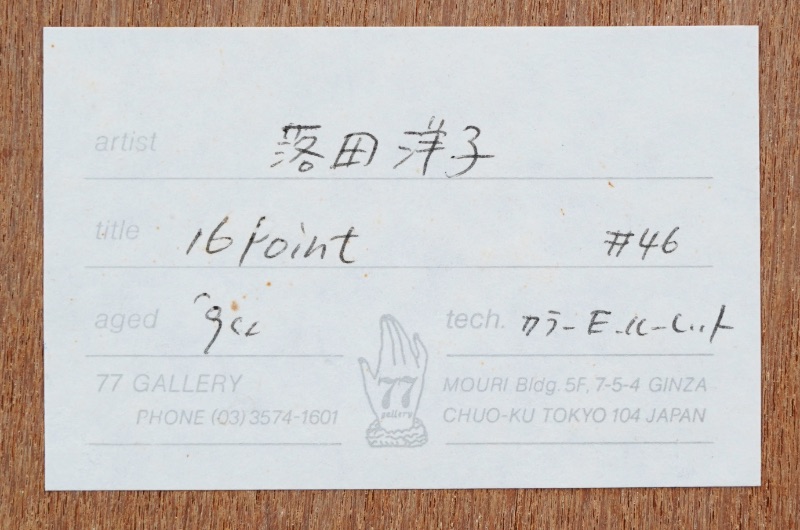 artist 落田洋子
title 16 Point #46
aged
tech. カラー
77 GALLERY
PHONE (03) 3574-1601
77
gallery
MOURI Bldg. 5F, 7-5-4 GINZA
CHUO-KU TOKYO 104 JAPAN